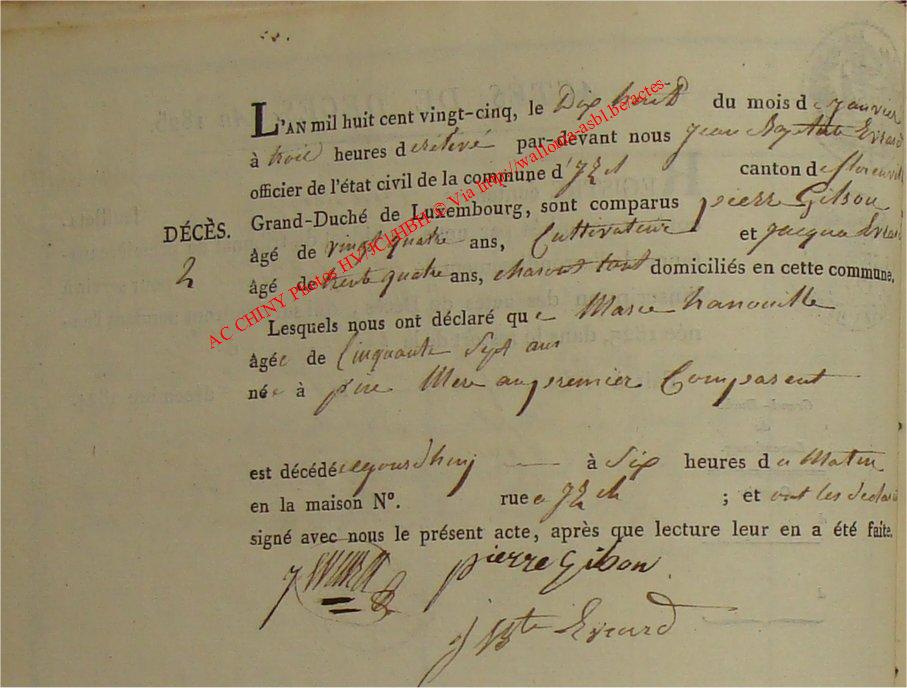 L'AN mil huit cent vingt-cinq, le Dix huit du mois de janvier
à trois heures de relevé par-devant nous jean Baptiste Evrard
officier de l'état civil de la commune d'Izel canton de florenvill
Grand-Duché de Luxembourg, sont comparus pierre Gilson
DÉCÈS. âgé de vingt quatre ans, Cultivateur et jacque Evrard
2 âgé de trente quatre ans, domiciliés en cette commune.
Lesquels nous ont déclaré que Marie hanouille
âgée de Cinquante Sept ans
née à Mere au premier Comparent
est décédé aujourdhuy à Six heures du Matin
en la maison N°. rue a Izel ; et ont les declar
signé avec nous le présent acte, après que lecture leur en a été faite.
pierre Gilson
J Bte Evrard
AC CHINY Photos HV/JCl/HBH © Via http://wallonia-asbl.be/actes.